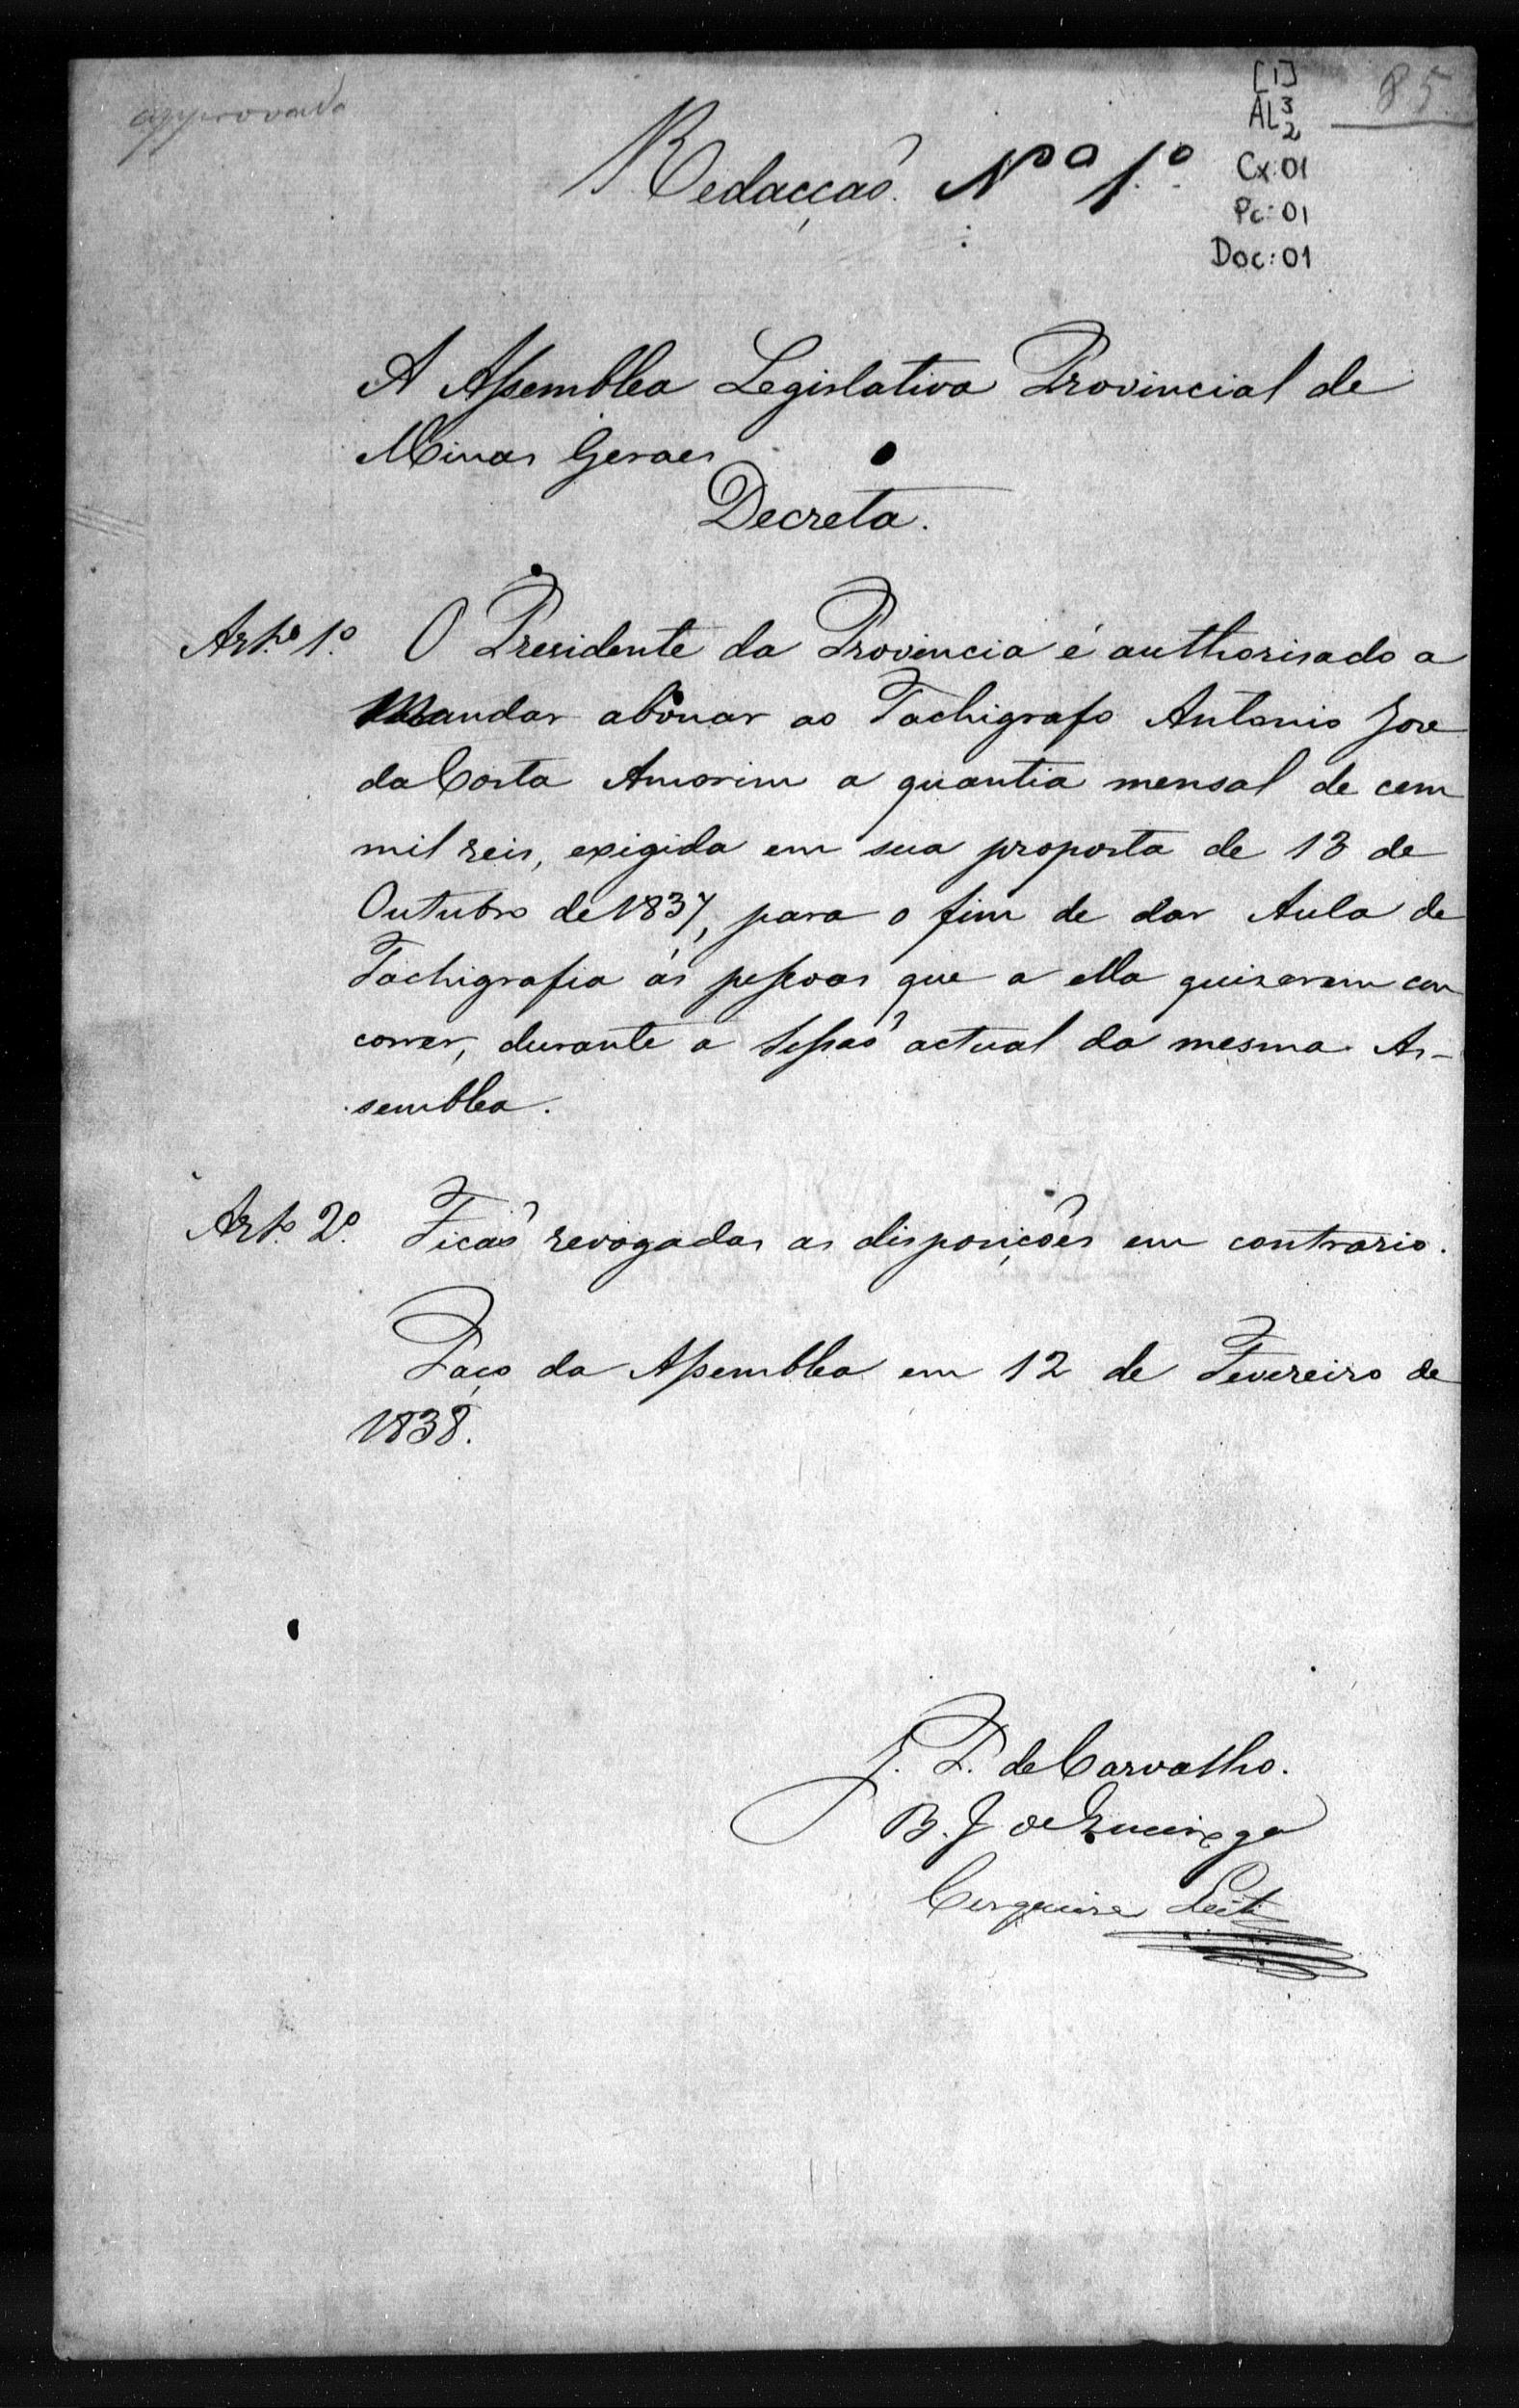 approvada
85
[1]
AL 3
2
Cx: 01
Pc: 01
Doc: 01
Redacçaõ. Nº 1º
A Assemblea Legislativa Provincial de
Minas Geraes
Decreta.
Artº 1º. O Presidente da Provincia é authorisado a
Mandar abonar ao Tachigrafo Antonio Jose
da Costa Amorim a quantia mensal de cem
mil reis, exigida em sua proposta de 13 de
Outubro de 1837, para o fim de dar Aula de
Tachigrafia ás pessoas que a ella quiserem con
correr, durante a Sessaõ actual da mesma As-
semblea.
Artº 2º. Ficaõ revogadas as disposições em contrario.
Paço da Assemblea em 12 de Fevereiro de
1838.
J. P. de Carvalho.
B. J.
Cerqueira Leite